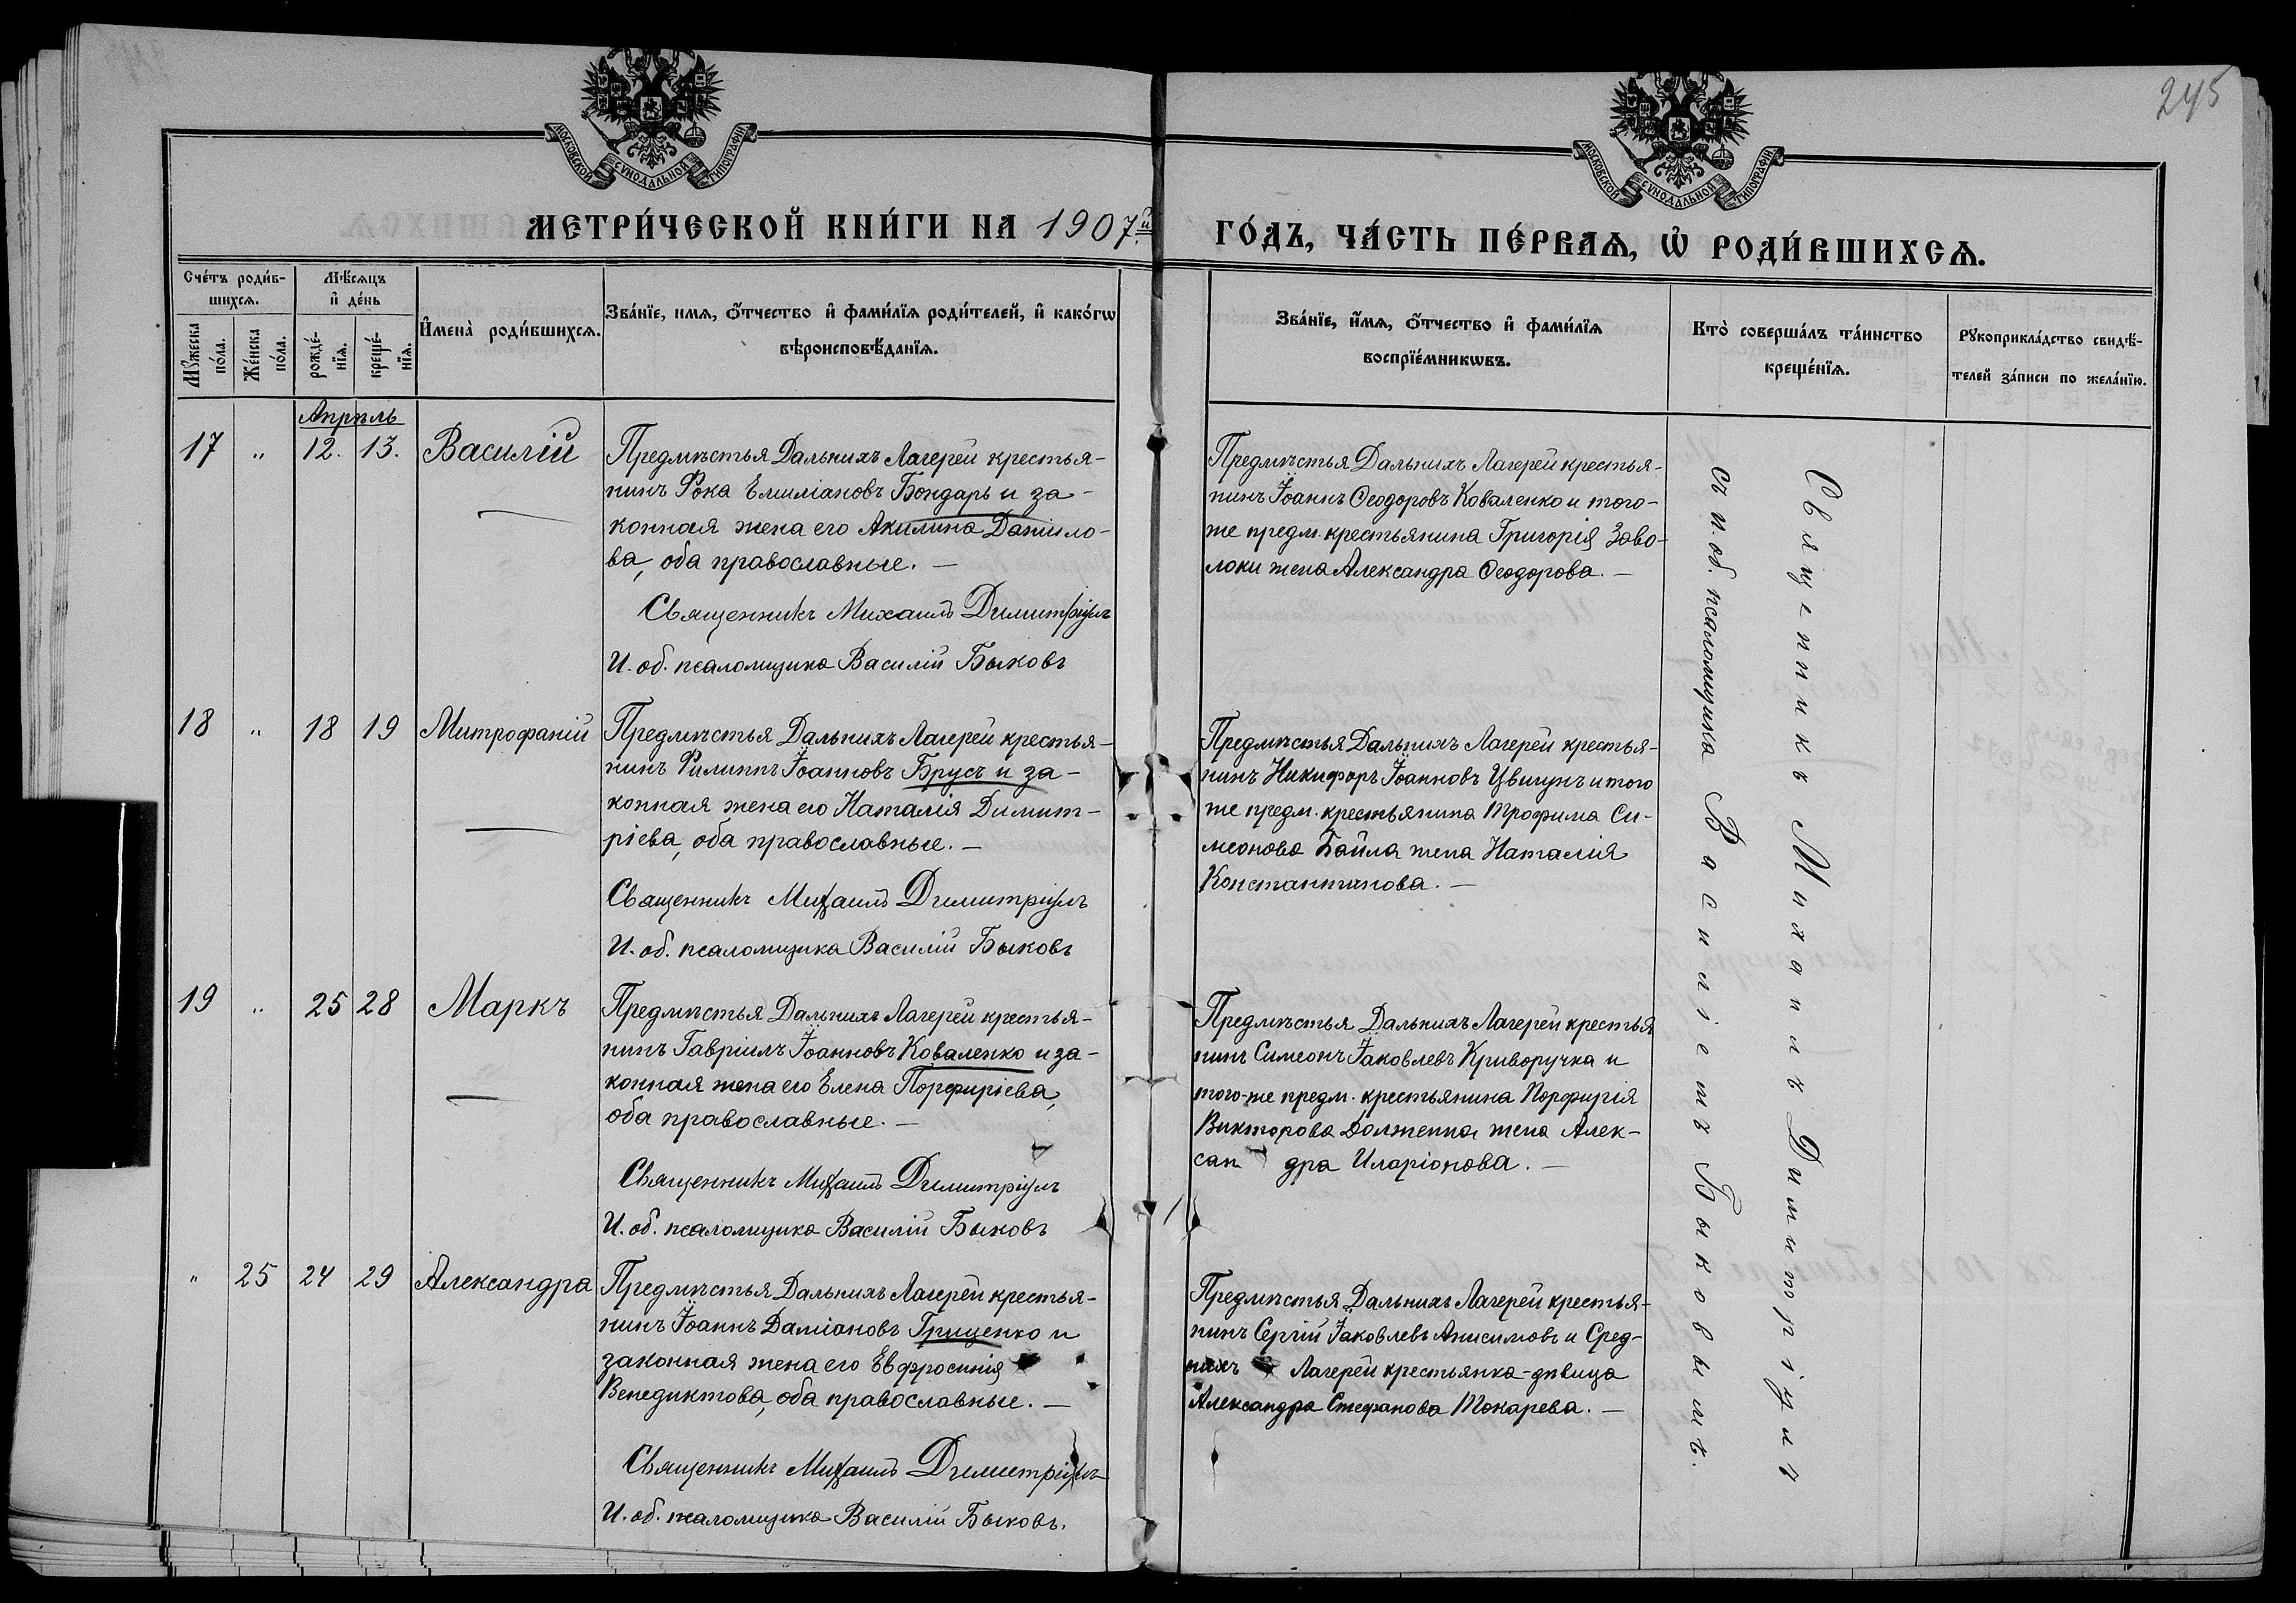 245
МОСКОВСКОЙ СѴНОДАЛЬНОЙ ТИПОГРАФІИ
МОСКОВСКОЙ СѴНОДАЛЬНОЙ ТИПОГРАФІИ
МЕТРИ́ЧЕСКОЙ КНИ́ГИ НА 1907й
ГО́ДЪ, ЧА́СТЬ ПЕ́РВАѦ, Ѡ҆ РОДИ́ВШИХСѦ.
Сче́тъ роди́в-
шихсѧ.
Мѣ́сѧцъ
и҆ де́нь
Мꙋ́жеска
по́ла.
Же́нска
по́ла.
рожде́-
нїѧ.
креще́-
нїѧ.
И҆мена̀ роди́вшихсѧ.
Зва́нїе, имѧ, ѻ҆́тчество и҆ фами́лїѧ роди́телей, и҆ како́гѡ
вѣроисповѣ́данїѧ.
Зва́нїе, и҆́мѧ, ѻ҆́тчество и҆ фами́лїѧ
воспрїе́мникѡвъ.
Кто̀ соверша́лъ та́инство
креще́нїѧ.
Рꙋкоприкла́дство свидѣ́-
телей за́писи по жела́нїю.
Апрѣль
17 " 12. 13. Василій
Предмѣстья Дальнихъ Лагерей крестья-
нинъ Фока Емиліановъ Бондарь и за-
конная жена его Акилина Даніило-
ва, оба православные. —
Священникъ Михаилъ Димитріулъ
И. об. псаломщика Василій Быковъ
Предмѣстья Дальнихъ Лагерей крестья-
нинъ Іоаннъ Ѳеодоровъ Коваленко и того-
же предм. крестьянина Григорія Заво-
локи жена Александра Ѳеодорова. —
18 " 18 19 Митрофаній
Предмѣстья Дальнихъ Лагерей крестья-
нинъ Филиппъ Іоанновъ Брусъ и за-
конная жена его Наталія Димит-
ріева, оба православные. —
Священникъ Михаилъ Димитріулъ
И. об. псаломщика Василій Быковъ
Предмѣстья Дальнихъ Лагерей крестья-
нинъ Никифоръ Іоанновъ Цвигунъ и того
же предм. крестьянина Трофима Си-
меонова Байла жена Наталія
Константинова. —
19 " 25 28 Маркъ
Предмѣстья Дальнихъ Лагерей крестья-
нинъ Гавріилъ Іоанновъ Коваленко и за-
конная жена его Елена Порфиріева,
оба православные. —
Священникъ Михаилъ Димитріулъ
И. об. псаломщика Василій Быковъ
Предмѣстья Дальнихъ Лагерей крестья
нинъ Симеонъ Іаковлевъ Криворучка и
того-же предм. крестьянина Порфирія
Викторова Долженка жена Алек-
сан дра Иларіонова. —
" 25 24 29 Александра
Предмѣстья Дальнихъ Лагерей крестья-
нинъ Іоаннъ Даміановъ Гриценко и
законная жена его Евфросинія
Венедиктова, оба православные. —
Священникъ Михаилъ Димитріулъ
И. об. псаломщика Василій Быковъ.
Предмѣстья Дальнихъ Лагерей крестья-
нинъ Сергій Іаковлевъ Анисимовъ и Сред-
нихъ Лагерей крестьянка-дѣвица
Александра Стефанова Токарева. —
Священникъ Михаилъ Димитріулъ
съ и. об. псаломщика Василіемъ Быковымъ.